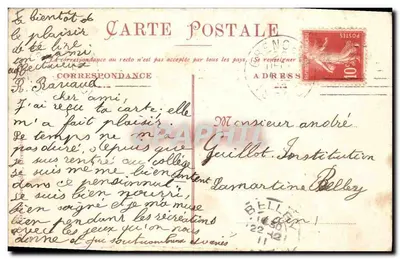 à bientôt de
le plaisir
de te lire
ton ami
affectueux
R. Barraud
CARTE POSTALE
La correspondance au recto n'est pas acceptée par tous les pays. Se renseigner
CORRESPONDANCE
ADRESSE
POSTES
10
cher ami,
J'ai reçu ta carte elle
m'a fait plaisir.
Le temps ne m'a
pas duré, depuis que
je suis rentré au collège
je suis meme bien content
dans ce pensionnat
je suis bien nourri,
bien soigné et je m'amuse
bien pendant les récréations
avec les jeux qu'on nous
donne et qui sont nombreux et variés
Monsieur andré
Guillot, Institution
Lamartine Belley
Ain
BELLEY
22
11